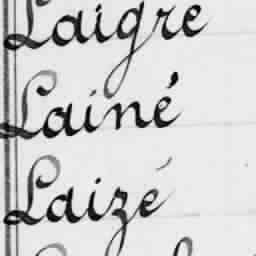 Laigre
Lainé
Laizé